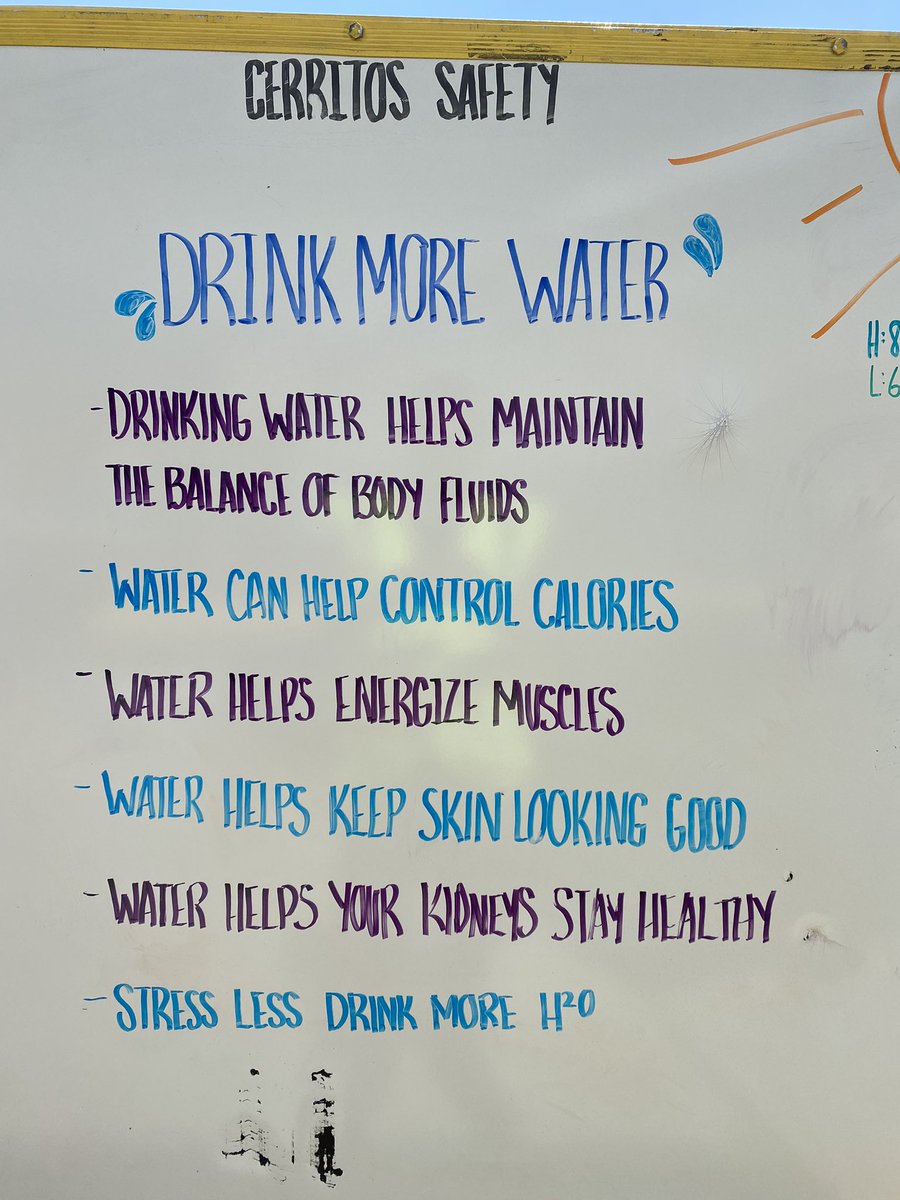 CERRITOS SAFETY
DRINK MORE WATER
- DRINKING WATER HELPS MAINTAIN
THE BALANCE OF BODY FLUIDS
- WATER CAN HELP CONTROL CALORIES
- WATER HELPS ENERGIZE MUSCLES
- WATER HELPS KEEP SKIN LOOKING GOOD
- WATER HELPS YOUR KIDNEYS STAY HEALTHY
- STRESS LESS DRINK MORE H²O